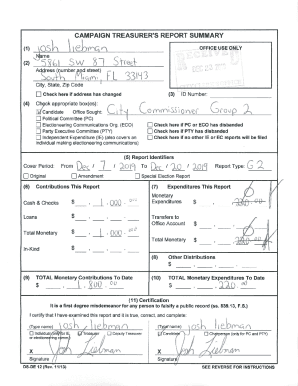 CAMPAIGN TREASURER'S REPORT SUMMARY
(1) Josh Liebman
Name
OFFICE USE ONLY
(2) 5861 SW 87 Street
Address (number and street)
South Miami, FL 33143
City, State, Zip Code
Check here if address has changed
(3) ID Number:
(4) Check appropriate box(es):
Candidate Office Sought: City Commissioner Group 2
Political Committee (PC)
Electioneering Communications Org. (ECO)
Check here if PC or ECO has disbanded
Party Executive Committee (PTY)
Check here if PTY has disbanded
Independent Expenditure (IE) (also covers an individual making electioneering communications)
Check here if no other IE or EC reports will be filed
(5) Report Identifiers
Cover Period: From Dec / 7 / 2019 To Dec / 20 / 2019 Report Type: G2
Original Amendment Special Election Report
(6) Contributions This Report
(7) Expenditures This Report
Cash & Checks $ 1,000.00
Monetary Expenditures $
Loans $
Transfers to Office Account $
Total Monetary $ 1,000.00
Total Monetary $
In-Kind $
(8) Other Distributions
$
(9) TOTAL Monetary Contributions To Date
$ 1,800.00
(10) TOTAL Monetary Expenditures To Date
$ 220.00
(11) Certification
It is a first degree misdemeanor for any person to falsify a public record (ss. 839.13, F.S.)
I certify that I have examined this report and it is true, correct, and complete:
(Type name) Josh Liebman
(Type name) Josh Liebman
Treasurer Deputy Treasurer
Candidate Chairperson (only for PC and PTY)
X Josh Liebman
Signature
X Josh Liebman
Signature
DS-DE 12 (Rev. 11/13)
SEE REVERSE FOR INSTRUCTIONS